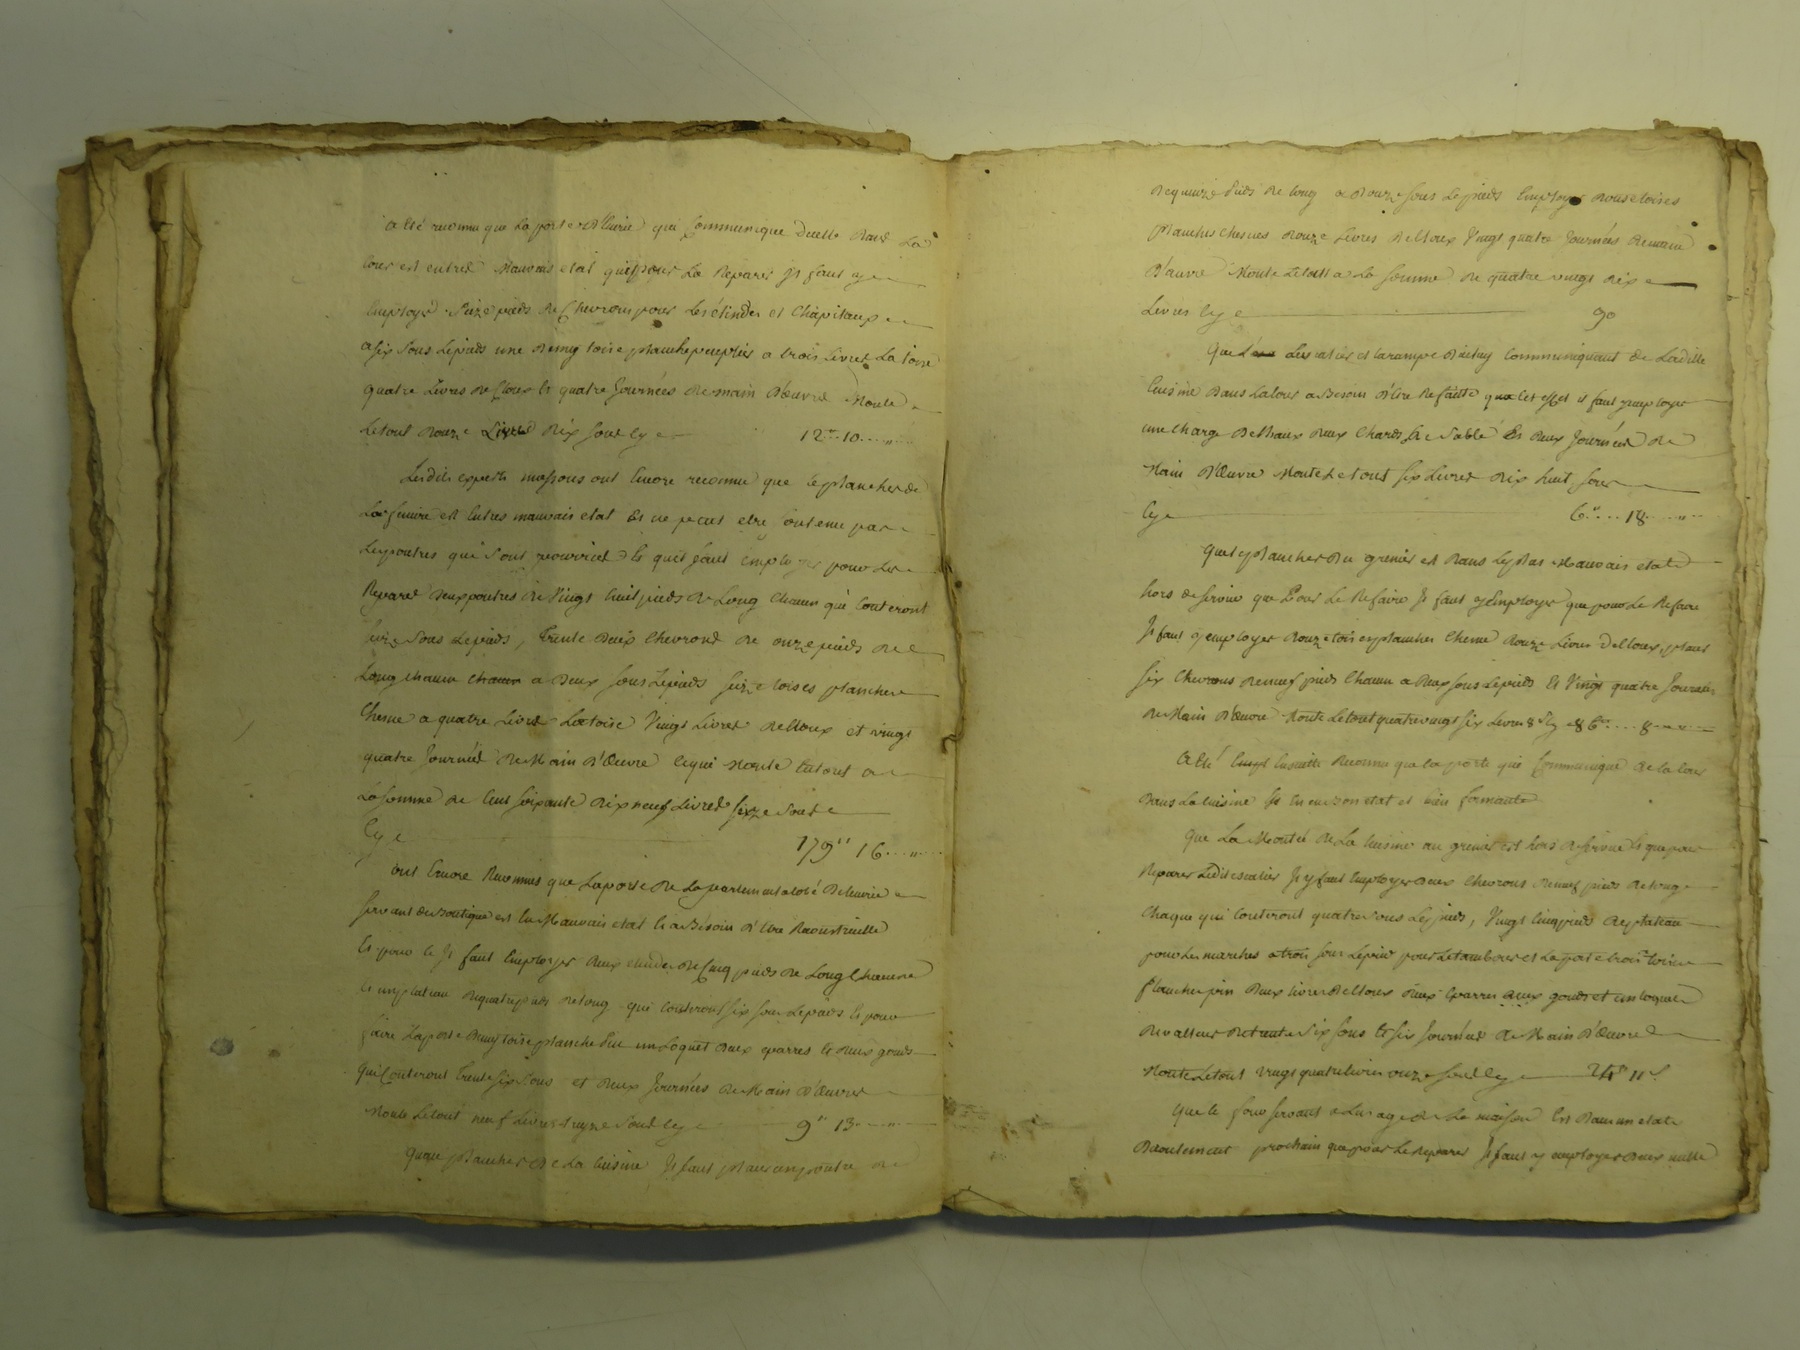 a été reconnu que la porte d'Ecurie qui Communique d'icelle dans La
Cour est en tres Mauvais etat que pour La Reparer Jl faut y
Employer Seize pieds de Chevrons pour Les étindes et Chapitaux
a six sous Le pieds une demy toise planche peuplier a trois Livres La toise
quatre Livres de Cloux Et quatre Journées de main D'œuvre Monte
Le tout Douze Livres Dix sous Cy 12" 10
Lesdits experts massons ont Encore reconnu que le plancher de
La est En tres mauvais etat Et ne peut etre soutenu par
Les poutres qui sont Et qu'il faut Employer pour Les
Reparer deux poutres de Vingt huit pieds de Long Chacun qui Couteront
seize Sous Le pieds, trente Deux Chevrons de onze pieds de
Long chacun a Deux sous Le pieds seize toises planche
Chesne a quatre Livres La toise Vingt Livres de Cloux et vingt
quatre Journées De Main D'œuvre ce qui Monte Le tout a
La somme de Cent soixante Dix neuf Livres seize Sous
Cy 179" 16
ont Encore Reconnus que La porte de
servant de Boutique est En Mauvais etat Et a Bésoin d'être
Et pour ce Jl faut Employer deux etindes de Cinq pieds de Long Chacune
Et un plateau de quatre pieds de Long qui Couteront six sous Le pieds Et pour
faire La porte Demy toise planche un Loquet Deux eparres Et Deux gonds
qui Couteront trente six Sous et Deux Journées De Main D'œuvre
Monte Le tout neuf Livres treize Sous Cy 9" 13
qu'au plancher De La Cuisine Jl faut placer un poutre de
de quinze pieds de Long a Douze sous Le pieds Employer Douse toises
planches Chesnes Douze Livres De Cloux Vingt quatre Journées De main
D'œuvre Monte Le tout a La somme de quatre vingt dix
Livres Cy 90
Que L'escalier et La rampe D'icluy Communiquant de Ladite
Cuisine Dans La Cour a Besoin D'être Refaite que cet effet il faut y employer
une charge De Chaux deux Chards de Sable Et deux Journées de
Main D'Œuvre Monte Le tout six Livres Dix huit sous
Cy 6" 18
Que Le plancher Du grenier est Dans Le plus Mauvais etat
hors de service que Pour Le Refaire Jl faut y Employer que pour Le Refaire
Jl faut y employer Douze toises planches Chesne Douze Livres De Cloux, placer
six Chevrons de neuf pieds Chacun a Deux sous Le pieds Et Vingt quatre Journées
de Main D'œuvre Monte Le tout quatre vingt six Livres 8 s Cy 86" 8
A Eté Ensuitte Reconnu que La porte qui Communique de La Cour
Dans La Cuisine Est En bon etat et bien fermante
Que La Montée De La Cuisine au grenier est hors De service Et que pour
Reparer Ledit escalier Jl y faut Employer Deux Chevrons de neuf pieds de Long
Chaque qui Couteront quatre sous Le pieds, Vingt Cinq pieds De plateau
pour Les marches a trois sous Le pied pour Le tambour et La porte trois toises
Planche pin Deux Livres De Cloux deux Eparres deux gonds et un Loquet
De valleur De trente Six sous Et six Journées De Main D'œuvre
Monte Le tout Vingt quatre Livres onze sous Cy 24" 11 s
Que Le four servant a L'usage De La maison Est Dans un etat
D'ecroulement prochain que pour Le Reparer Jl faut y employer Deux mille